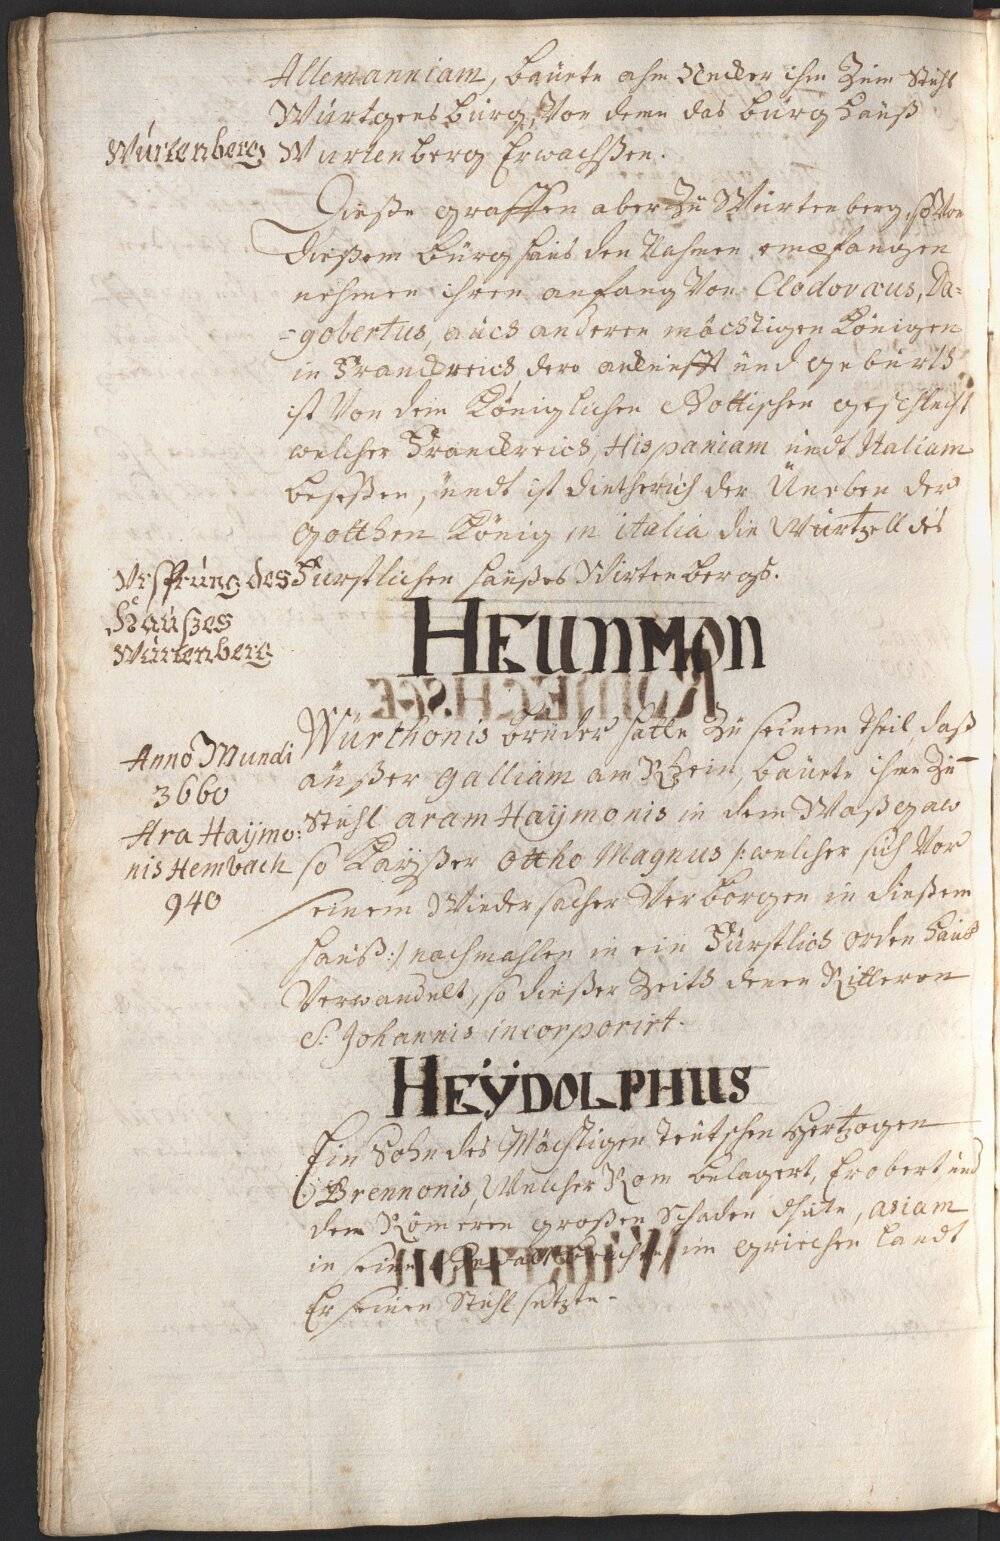 Allemanniam, bauete ahm Necker ihm zum Stuhl
Würtgensburg, Von deme das burghauß
Würtenberg
Würtenberg Erwachßen.
Dieße graffen aber zu Würtenberg, so Von
dießem burghaus den Nahmen empfangen
nehmen ihren anfang Von Clodovæus, Da=
=gobertus, auch anderen mächtigen Königen
in Franckreich, dero ankunfft und geburth
ist Von dem Königlichen Gottischen geschlecht
welcher Franckreich, Hispaniam undt Italiam
beseßen, undt ist dietherich der Bern der
gotthen König in italia die Wurtzell des
Vrsprung des
Haußes
Würtenberg
Fürstlichen haußes Wirtenbergs.
HEUNMON
Anno Mundi
3660
Ara Haÿmo:
nis Hembach
940
Würthonis bruder hatte zu seinem theil, daß
äußer Galliam am Rhein, bauete ihme zu
Stuhl aram Haÿmonis in dem Waßgaw
so Kaÿßer Ottho Magnus /:welcher sich Vor
seinem Wiedersacher Verborgen in dießem
hauß:/ nachmahlen in ein Fürstlich orden hauß
Verwandelt, so dießer Zeith denen Ritteren
S: Johannis incorporirt.
HEŸDOLPHUS
Ein Sohn des Mächtigen Teütschen Hertzogen
Brennonis, Welcher Rom belagert, Erobert und
den Römeren großen Schaden thäte, asiam
in seine brachte, im griechen landt
Er seinen Stuhl setzte.